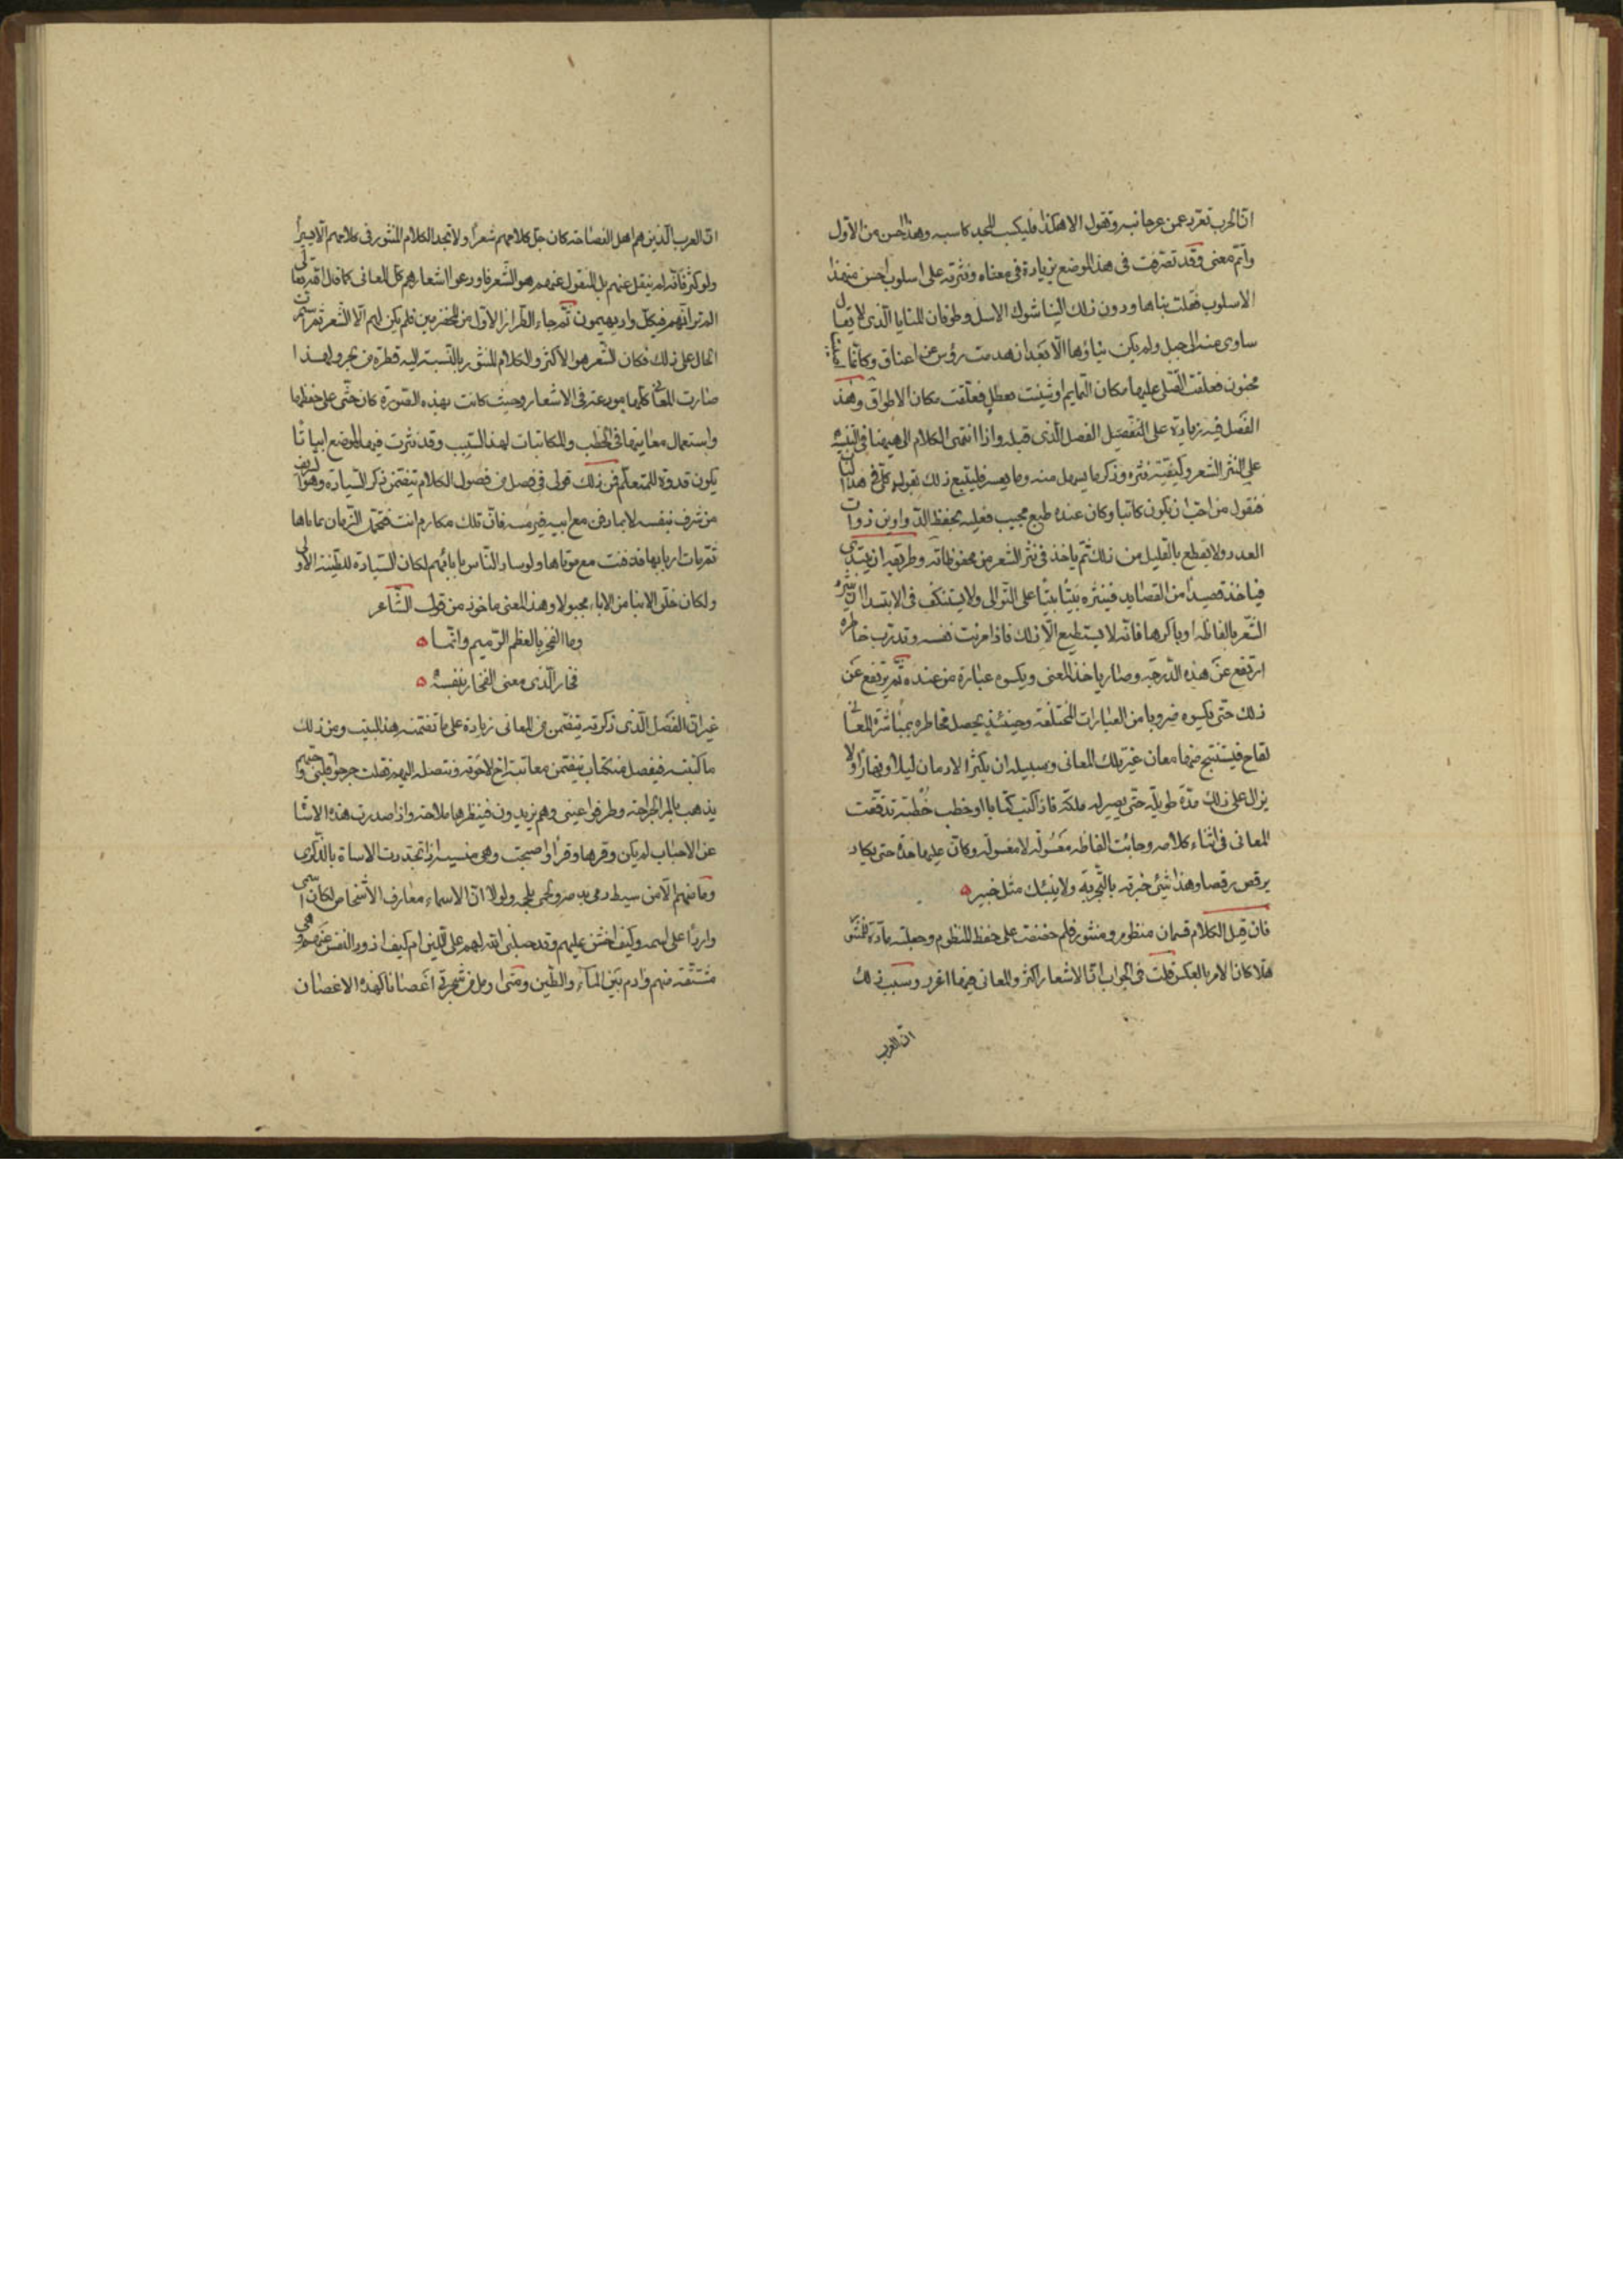 ان الحرب تعرد عمن عرجانبه وتقول الا هكذا فليكسب المجد كاسبه وهذا احسن من الاول
واتم معنى وقد تصرفت في هذا الموضع بزيادة في معناه ونثرته على اسلوب احسن من هذا
الاسلوب فقلت بناها ودون ذلك البنا شوك الاسل وطوفان المنايا الذي لا يقال
ساوى منه الى جبل ولم يكن بناؤها الا بعد ان هدمت رؤس عن اعناق وكانما
جنون فعلقت القتلى عليها مكان التمايم او شينت بعطل فعلقت مكان الاطواق وهذا
الفصل فيه زيادة على الفصل الذي قبله واذا انتهى الكلام الى ههنا في التنبيه
على نثر الشعر وكيفية نثره وذكر ما يسهل منه وما يعسر فليتبع ذلك بقول كلي في هذا الباب
فنقول من احب ان يكون كاتبا وكان عنده طبع مجيب فعليه بحفظ الدواوين ذوات
العدد ولا يقطع بالقليل من ذلك ثم ياخذ في نثر الشعر من محفوظاته وطريقه ان يبتدى
فياخذ قصيدا من القصايد فينثره بيتا بيتا على التوالي ولا يستنكف في الابتدا ان ينثر
الشعر بالفاظه او باكثرها فانه لا يستطيع الا ذلك فاذا مرنت نفسه وتدرب خاطره
ارتفع عن هذه الدرجة وصار ياخذ المعنى ويكسوه عبارة من عنده ثم يرتفع عن
ذلك حتى يكسوه ضروبا من العبارات المختلفة وحينئذ يحصل لخاطره بمباشرة المعاني
لقاح فيستنتج منها معان غير تلك المعاني وسبيله ان يكثر الادمان ليلا ونهارا ولا
يزال على ذلك مدة طويلة حتى يصير له ملكة فاذا كتب كتابا او خطب خطبة تدفقت
المعاني في اثناء كلامه وجائت الفاظه معسولة لا مغسولة وكان عليها حدة حتى يكاد
يرقص رقصا وهذا شئ خبرته بالتجربة ولا ينبئك مثل خبير
فان قيل الكلام قسمان منظوم ومنثور فلم حضضت على حفظ المنظوم وجعلته مادة للمنثور
هلا كان الامر بالعكس قلت في الجواب ان الاشعار اكثر والمعاني فيها اغزر وسبب ذلك
ان العرب
ان العرب الذين هم اهل الفصاحة كان جل كلامهم شعرا ولا تجد الكلام المنثور في كلامهم الا يسيرا
ولو كثر فانه لم ينقل عنهم بل المنقول عنهم هو الشعر فاودعوا اشعارهم كل المعاني كما قال الله تعالى
الم تر انهم في كل واد يهيمون ثم جاء الطراز الاول من المخضرمين فلم يكن لهم الا الشعر ثم استمرت
الحال على ذلك فكان الشعر هو الاكثر والكلام المنثور بالنسبة اليه قطرة من بحر ولهذا
صارت المعاني كلها مودعة في الاشعار وحيث كانت بهذه الصورة كان حثى على حفظها
واستعمال معانيها في الخطب والمكاتبات لهذا السبب وقد نثرت في هذا الموضع ابياتا
يكون قدوة للمتعلم فمن ذلك قولى في فصل من فصول الكلام يتضمن ذكر السيادة وهو
من شرف بنفسه لا بمادفن مع ابيه في رمسه فان تلك مكارم انت فتجمل الزمان بماتاها
ثم مات اربابها فدفنت مع موتاها ولو ساد الناس بابائهم لكان السيادة للطينة الاولى
ولكان خلق الابنا من الاباء مجبولا وهذا المعنى ماخوذ من قول الشاعر
وما الفخر بالعظم الرميم وانما
فخار الذي معنى الفخار بنفسه
غير ان الفصل الذي ذكرته يتضمن من المعاني زيادة على ما تضمنه هذا البيت ومن ذلك
ما كتبته في فصل من كتاب يتضمن معاتبة اخ لاخوته وتنصله اليهم فقلت جرحوا قلبى وحبهم
يذهب بالم الجراحة وطرفوا عينى وهم يزيدون في نظرها ملاحة واذا صدرت هذه الاشيا
عن الاحباب لم يكن وقرها وقرا واصبحت وهى منسية اذا تجددت الاساة بالذكرى
وما منهم الا من سيط دمى بدمه ولحمى بلحمه ولولا ان الاسماء معارف الاشخاص لكان اسمى
واردا على اسمه وكيف اخشن عليهم وقد جبلنى الله لهم على اللين ام كيف اذود النفس عنهم وهى
مشتقة منهم وادم بين الماء والطين ومتى ارمل من شجرتى اغصانا كهذه الاغصان